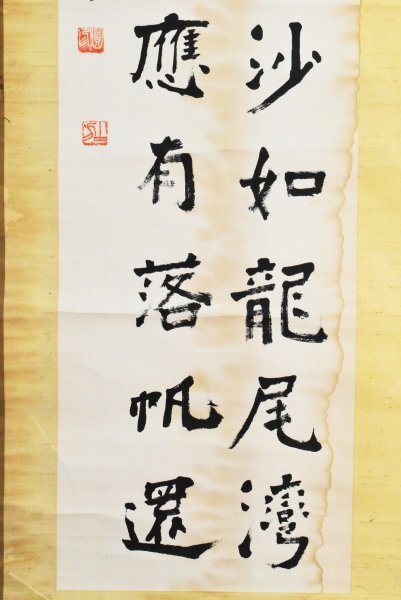 沙如龍尾灣
應有落帆還